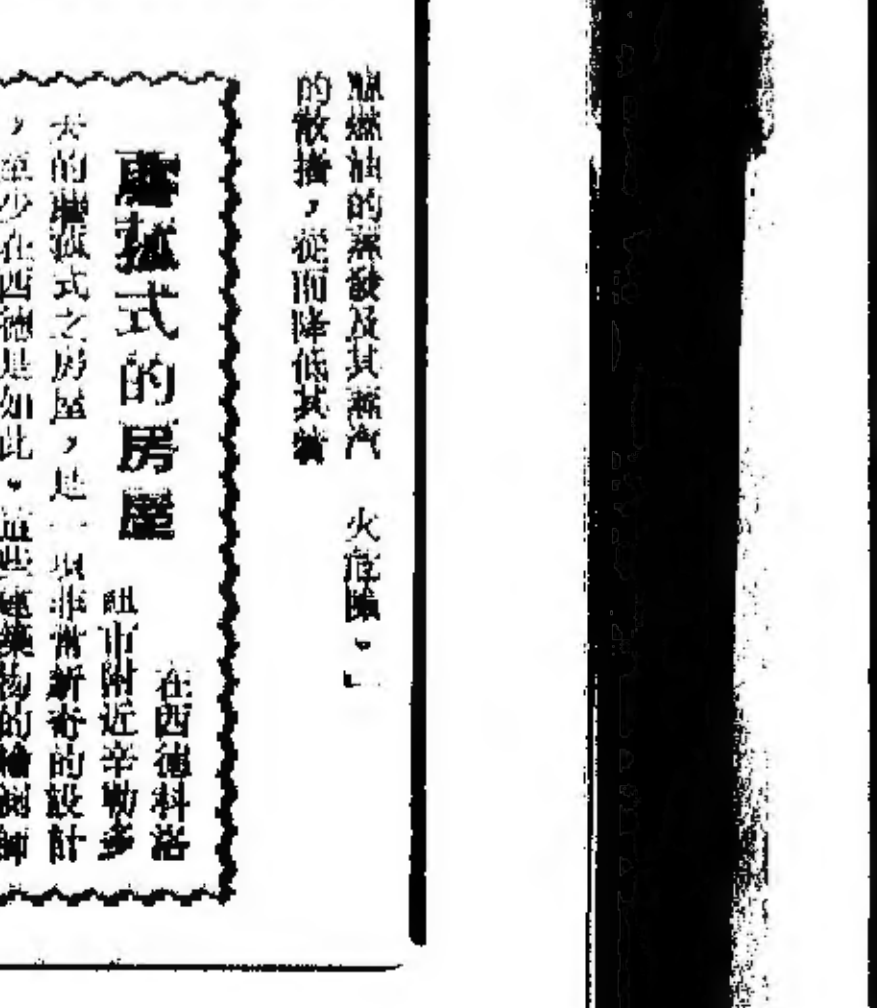 燃油的蒸發及其蒸汽
的散播，從而降低其
火危險。」
蘑菰式的房屋
在西德科洛
紐市附近辛勒多
夫的蘑菰式之房屋，是一項非常新奇的設計
，至少在西德是如此。這些建築物的